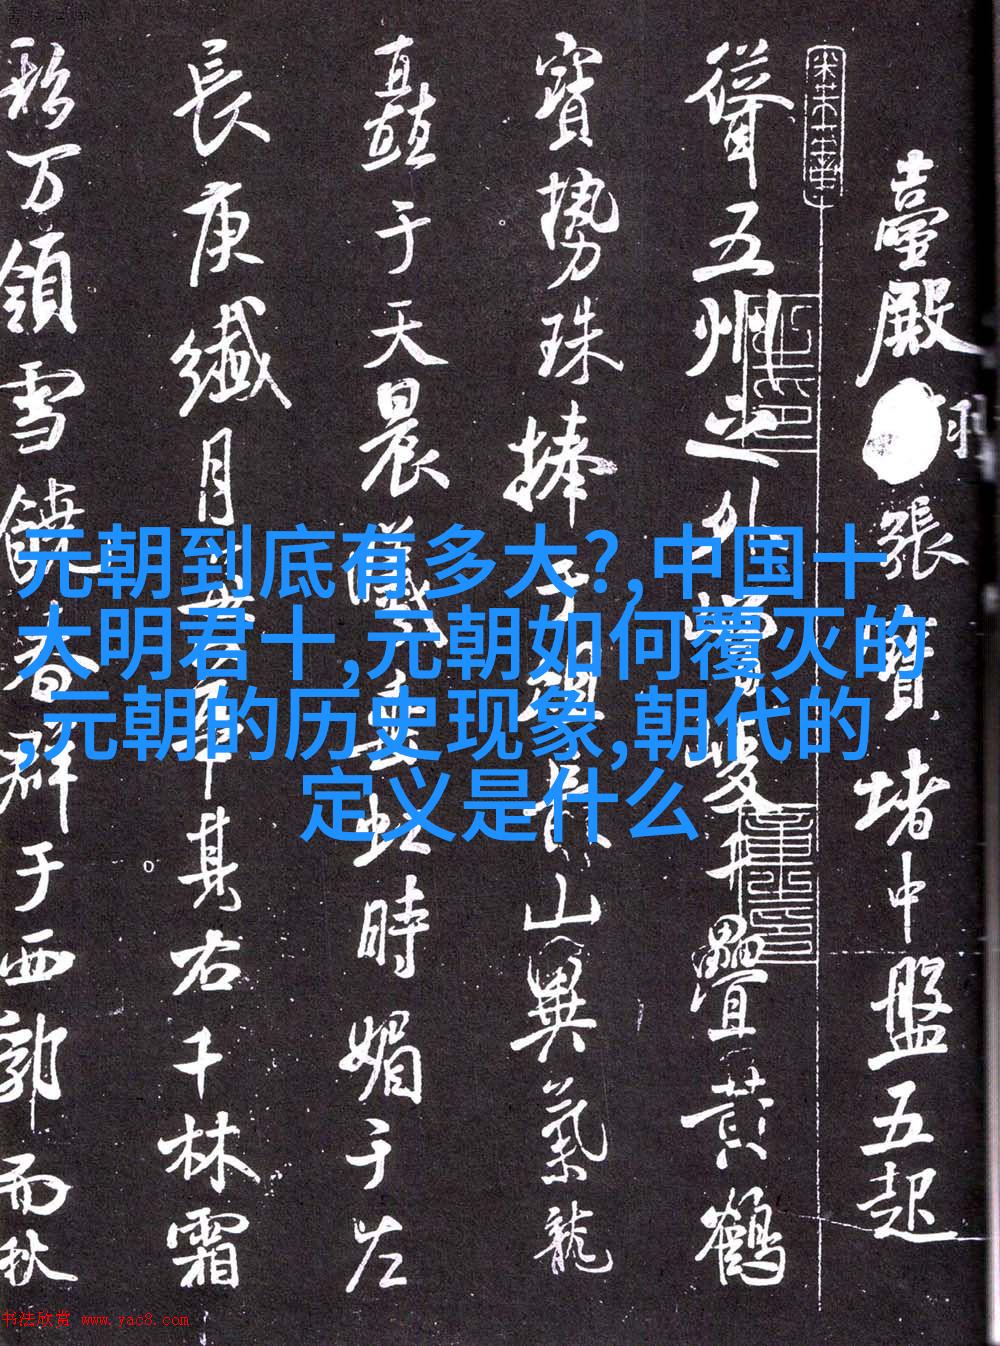 臺殿張寶堵中盤五起
聳五州之外疊黃鶴
寶勢珠捧于山異氣龍
矗于天晨虹時媚于左
長庚纖月其右千林霜
万領雪饒春群于西郭而秋
元朝到底有多大?,中国十
大明君十,元朝如何覆灭的
,元朝的历史现象,朝代的
定义是什么
书法欣赏 www.yac8.com